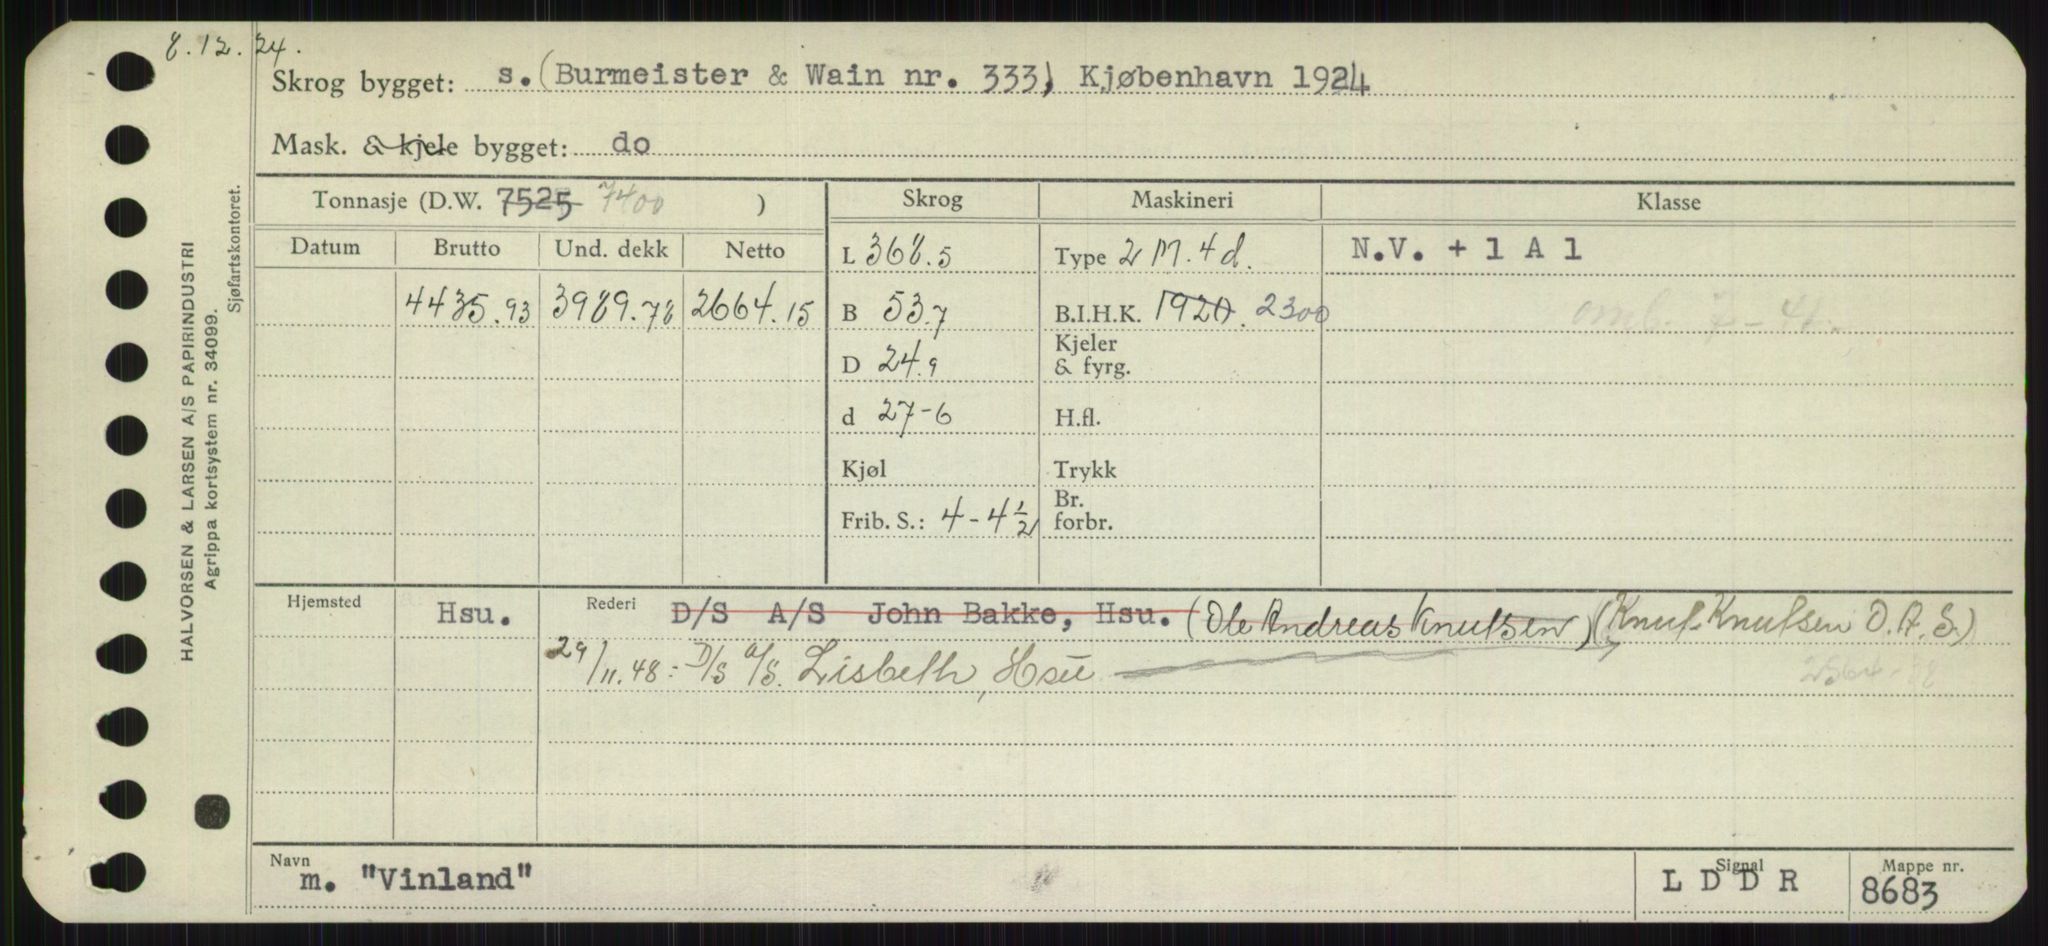 8.12.24.
Skrog bygget: s. (Burmeister & Wain nr. 333), Kjøbenhavn 1924
Mask. & kjele bygget: do
Tonnasje (D.W. 7525 7400 )
Skrog
Maskineri
Klasse
Datum Brutto Und. dekk Netto
L 368.5
Type 2 M. 4 d.
N.V. + 1 A 1
4435.93 3989.78 2664.15
B 53.7
B.I.H.K. 1920. 2300
omb. 7-41.
D 24.9
Kjeler
& fyrg.
d 27-6
H.fl.
Kjøl
Trykk
Frib. S.: 4-4½
Br.
forbr.
Hjemsted Hsu. Rederi D/S A/S John Bakke, Hsu. (Ole Andreas Knutsen) (Knut Knutsen O.A.S.)
29/11.48 :- D/S A/S. Lisbeth, Hsu
Navn
m. "Vinland"
Signal
L D D R
Mappe nr.
8683
HALVORSEN & LARSEN A/S PAPIRINDUSTRI
Agrippa kortsystem nr. 34099.
Sjøfartskontoret.